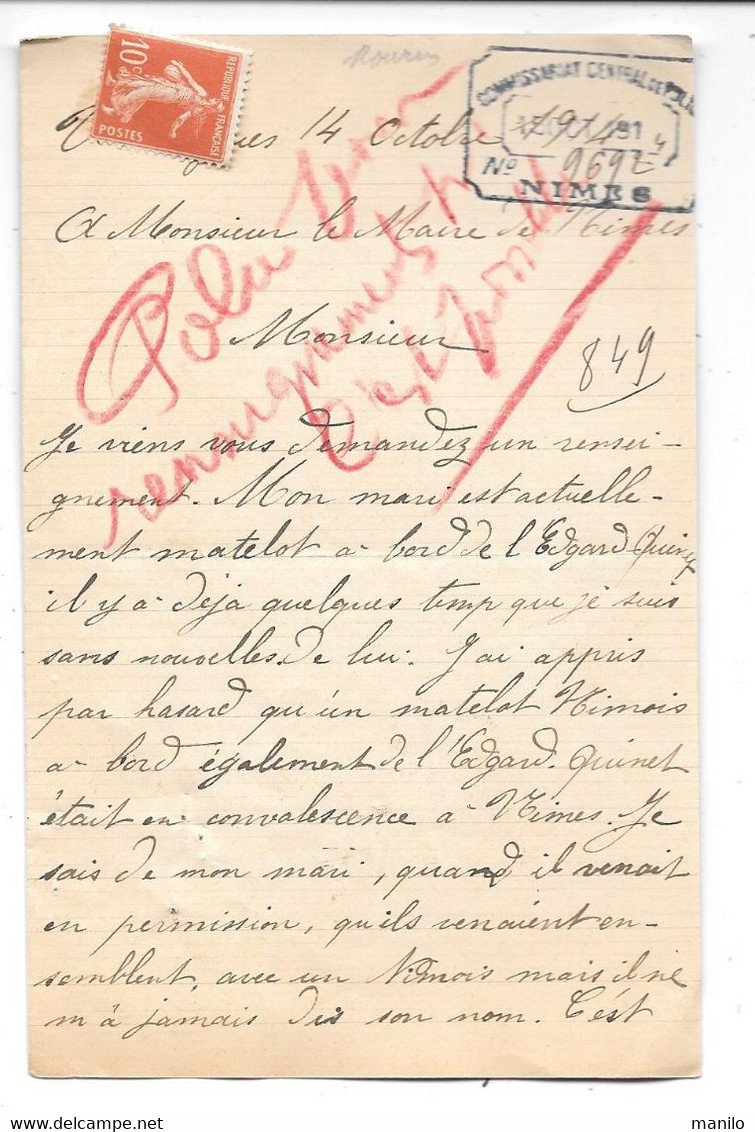 10 C
RÉPUBLIQUE FRANÇAISE
POSTES
COMMISSARIAT CENTRAL DE POLICE
No 9692
NIMES
14 Octobre 1914
A Monsieur le Maire de Nimes
Monsieur
849
Pour
renseignements
Je viens vous demandez un rensei-
gnement. Mon mari est actuelle-
ment matelot a bord de l'Edgard Quinet
il y a déja quelques temp que je suis
sans nouvelles de lui. J'ai appris
par hasard qu'un matelot Nimois
a bord également de l'Edgard. Quinet
était en convalescence a Nimes. Je
sais de mon mari, quand il venait
en permission, qu'ils venaient en-
semblent, avec un Nimois mais il ne
m'a jamais dis son nom. C'est